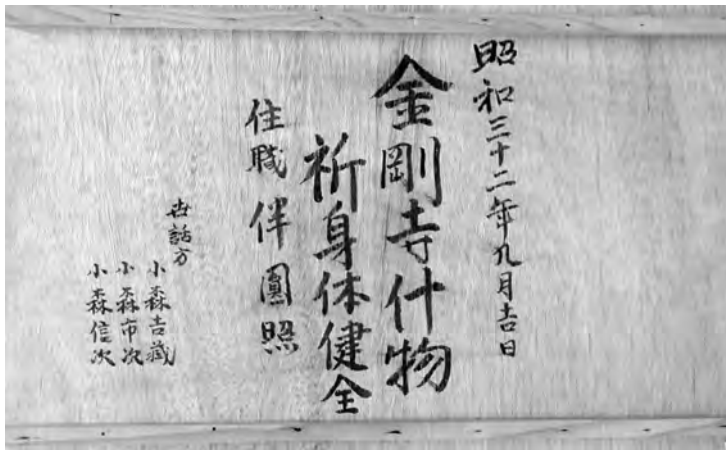 昭和三十二年九月吉日
金剛寺什物
祈身体健全
住職 伴圓照
世話方
小森吉藏
小森市次
小森信次